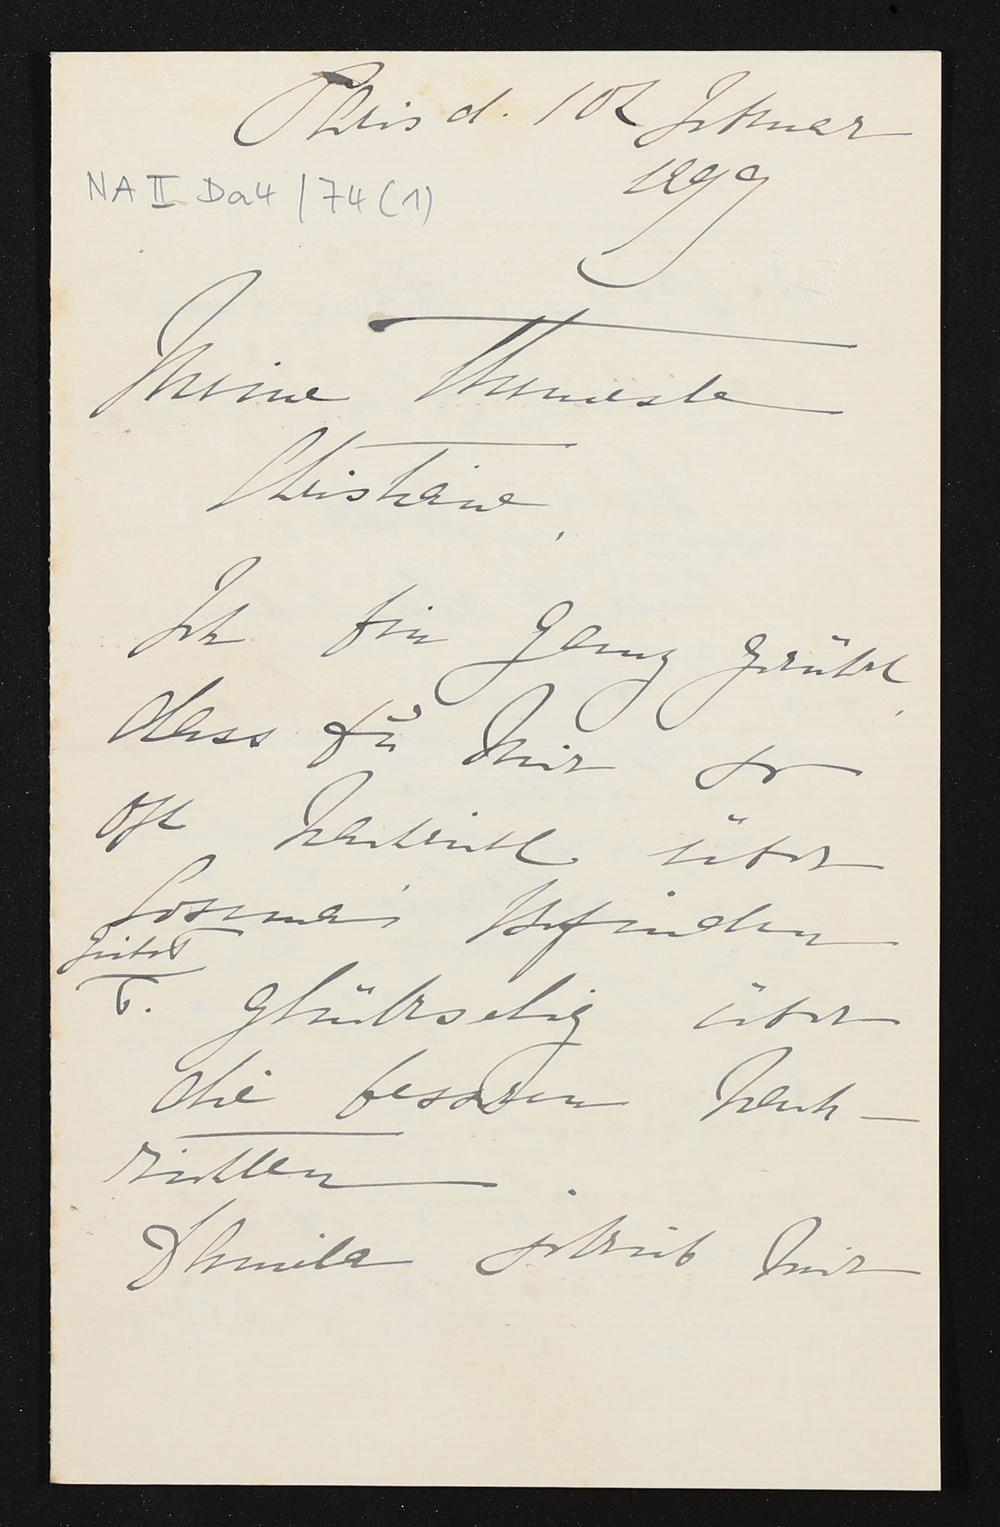 Paris d. 10t Januar
1899
NA II Da4 / 74 (1)
Meine Theuerste
Christiane,
Ich bin ganz gerührt,
dass Du mir so
oft Nachricht über
Cosima's Befinden
giebst
u. glückselig über
die besseren Nach-
richten.
Thmila schrieb mir